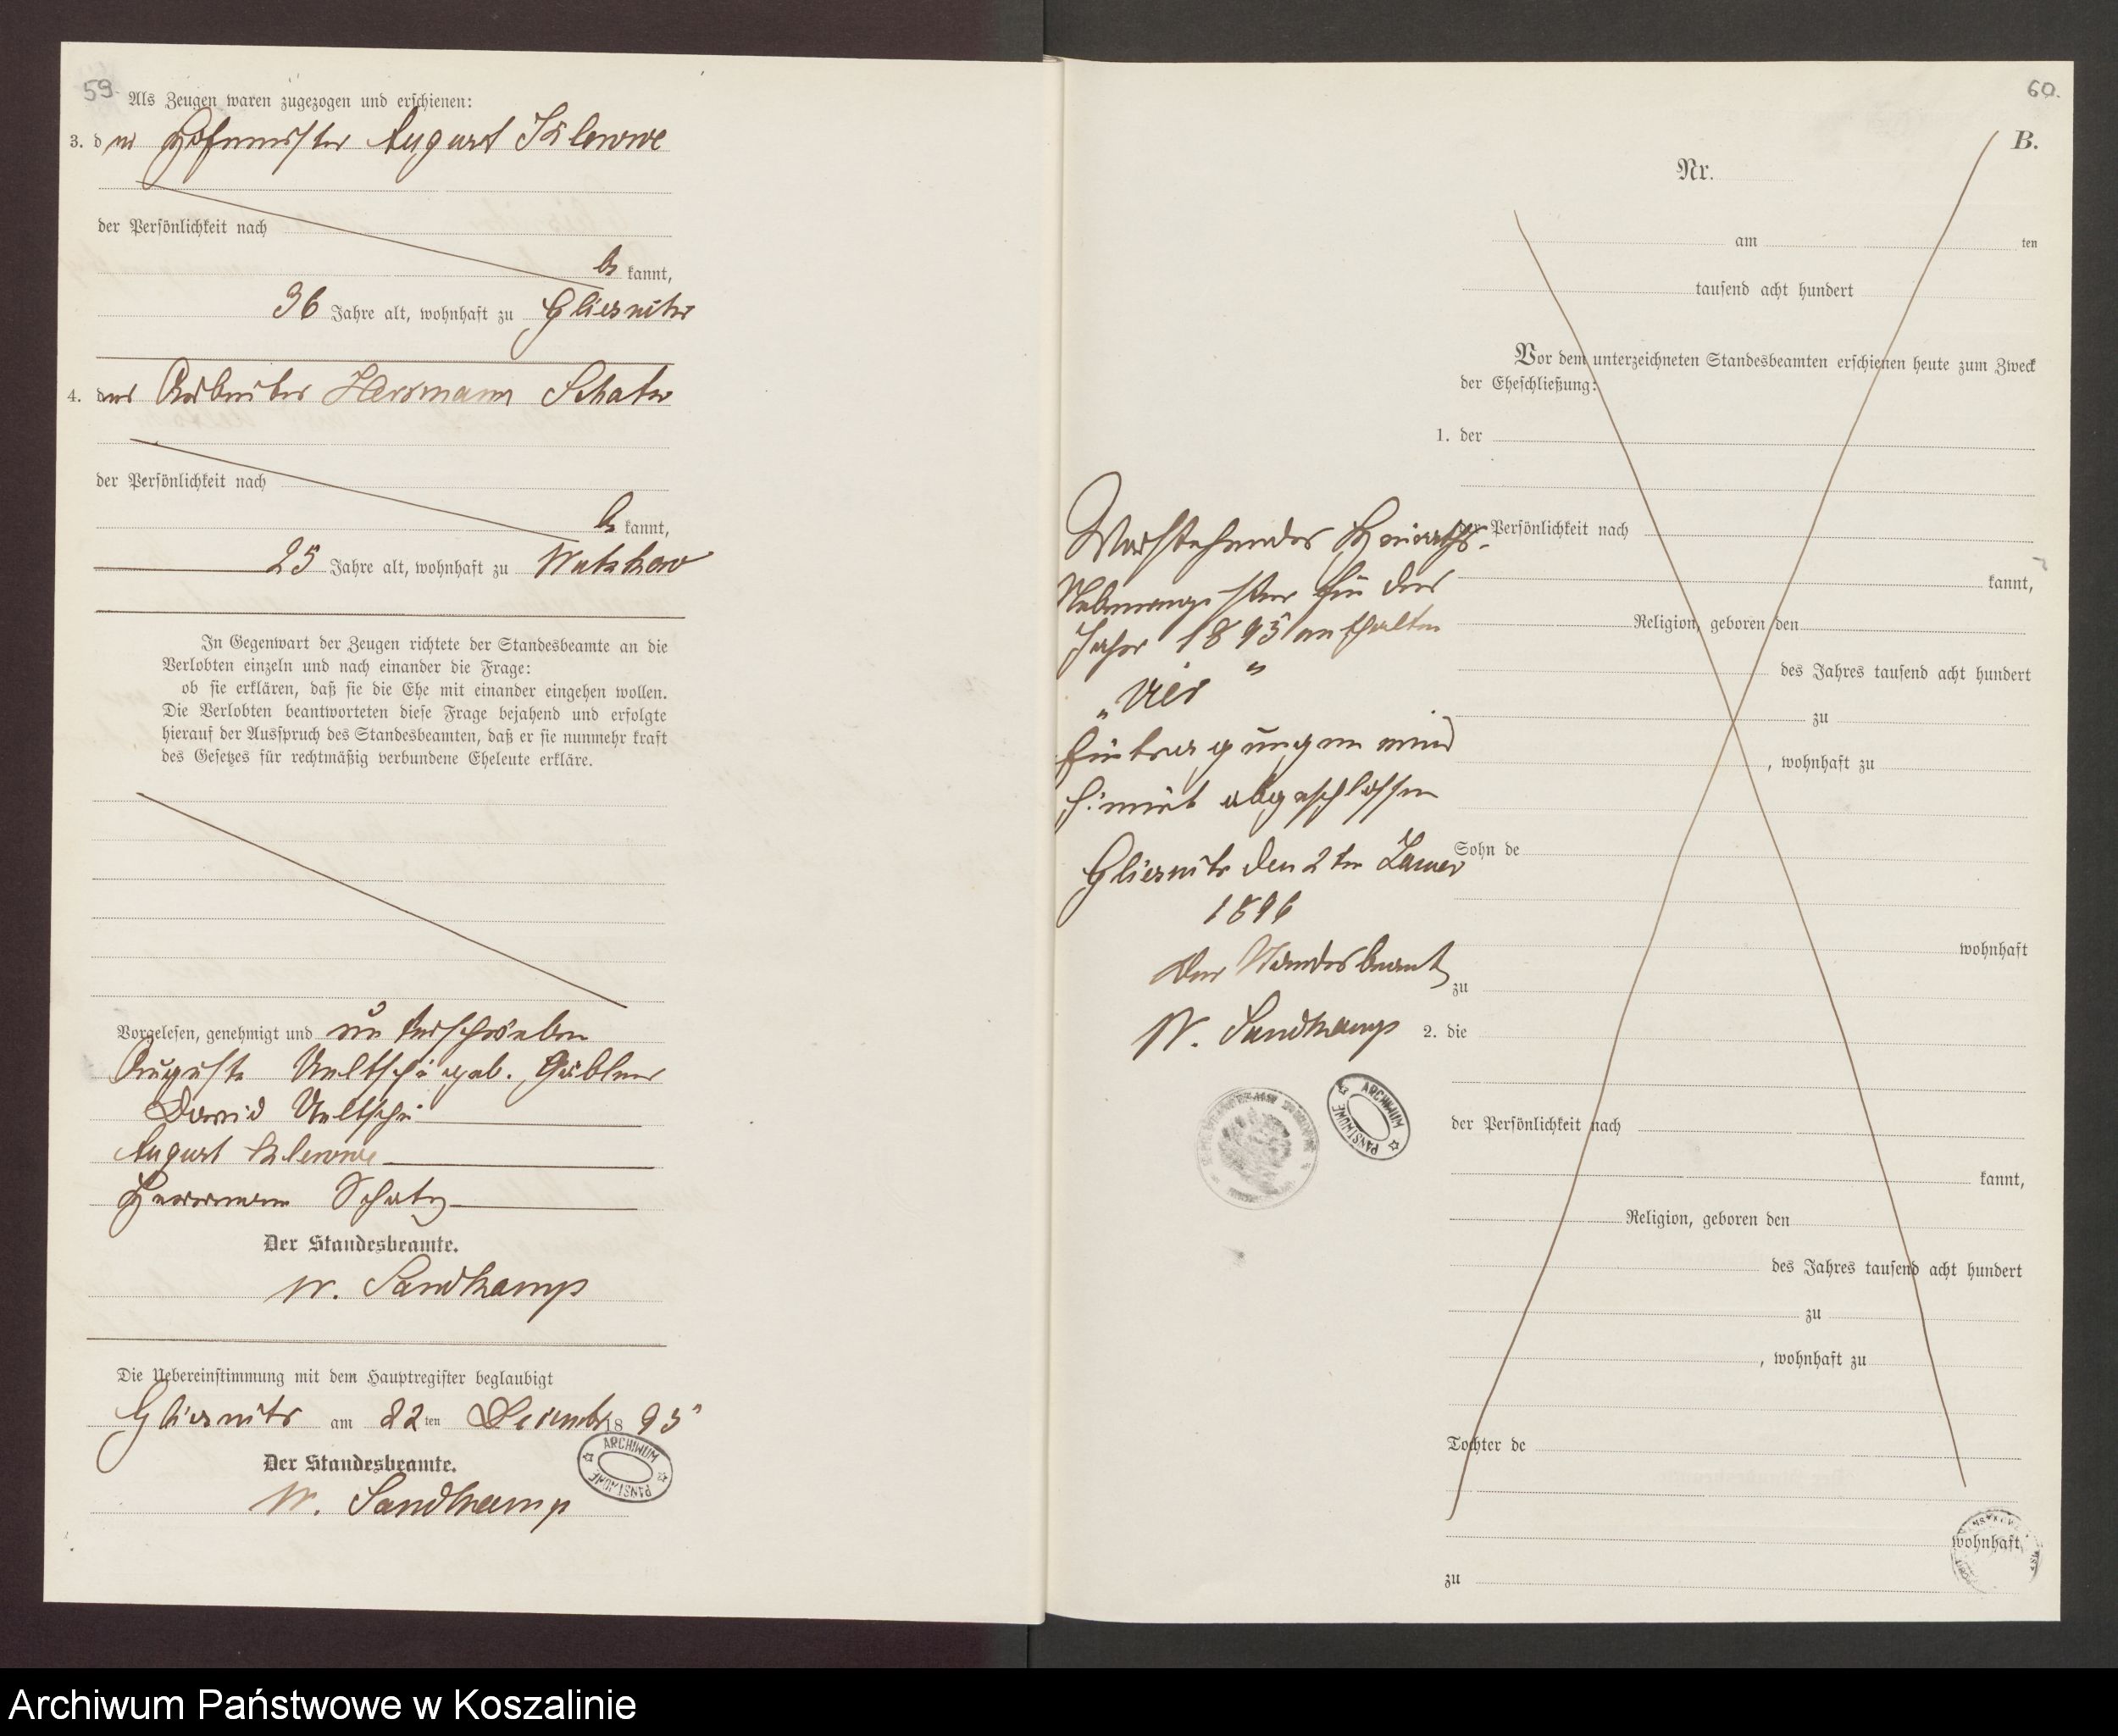 59.
Als Zeugen waren zugezogen und erschienen:
3. der Hofmeister August
der Persönlichkeit nach
be kannt,
36 Jahre alt, wohnhaft zu Gliesnitz
4. der Arbeiter Herrmann Schatz
der Persönlichkeit nach
be kannt,
25 Jahre alt, wohnhaft zu
In Gegenwart der Zeugen richtete der Standesbeamte an die
Verlobten einzeln und nach einander die Frage:
ob sie erklären, daß sie die Ehe mit einander eingehen wollen.
Die Verlobten beantworteten diese Frage bejahend und erfolgte
hierauf der Ausspruch des Standesbeamten, daß er sie nunmehr kraft
des Gesetzes für rechtmäßig verbundene Eheleute erkläre.
Vorgelesen, genehmigt und unterschrieben
Auguste geb.
David
August
Herrmann Schatz
Der Standesbeamte.
W. Sandkamp
Die Uebereinstimmung mit dem Hauptregister beglaubigt
Gliesnitz am 22ten December 1895
Der Standesbeamte.
W. Sandkamp
ARCHIWUM PAŃSTWOWE
60.
B.
Nr.
am ten
tausend acht hundert
Vor dem unterzeichneten Standesbeamten erschienen heute zum Zweck
der Eheschließung:
1. der
der Persönlichkeit nach
kannt,
Religion, geboren den
des Jahres tausend acht hundert
zu
, wohnhaft zu
Sohn de
wohnhaft
zu
2. die
der Persönlichkeit nach
kannt,
Religion, geboren den
des Jahres tausend acht hundert
zu
, wohnhaft zu
Tochter de
wohnhaft
zu
Vorstehendes Heiraths-
Nebenregister für das
Jahr 1895 enthaltend
„Vier"
Eintragungen wird
hiermit abgeschlossen
Gliesnitz den 2ten Januar
1896
Der Standesbeamte
W. Sandkamp
ARCHIWUM PAŃSTWOWE
Archiwum Państwowe w Koszalinie